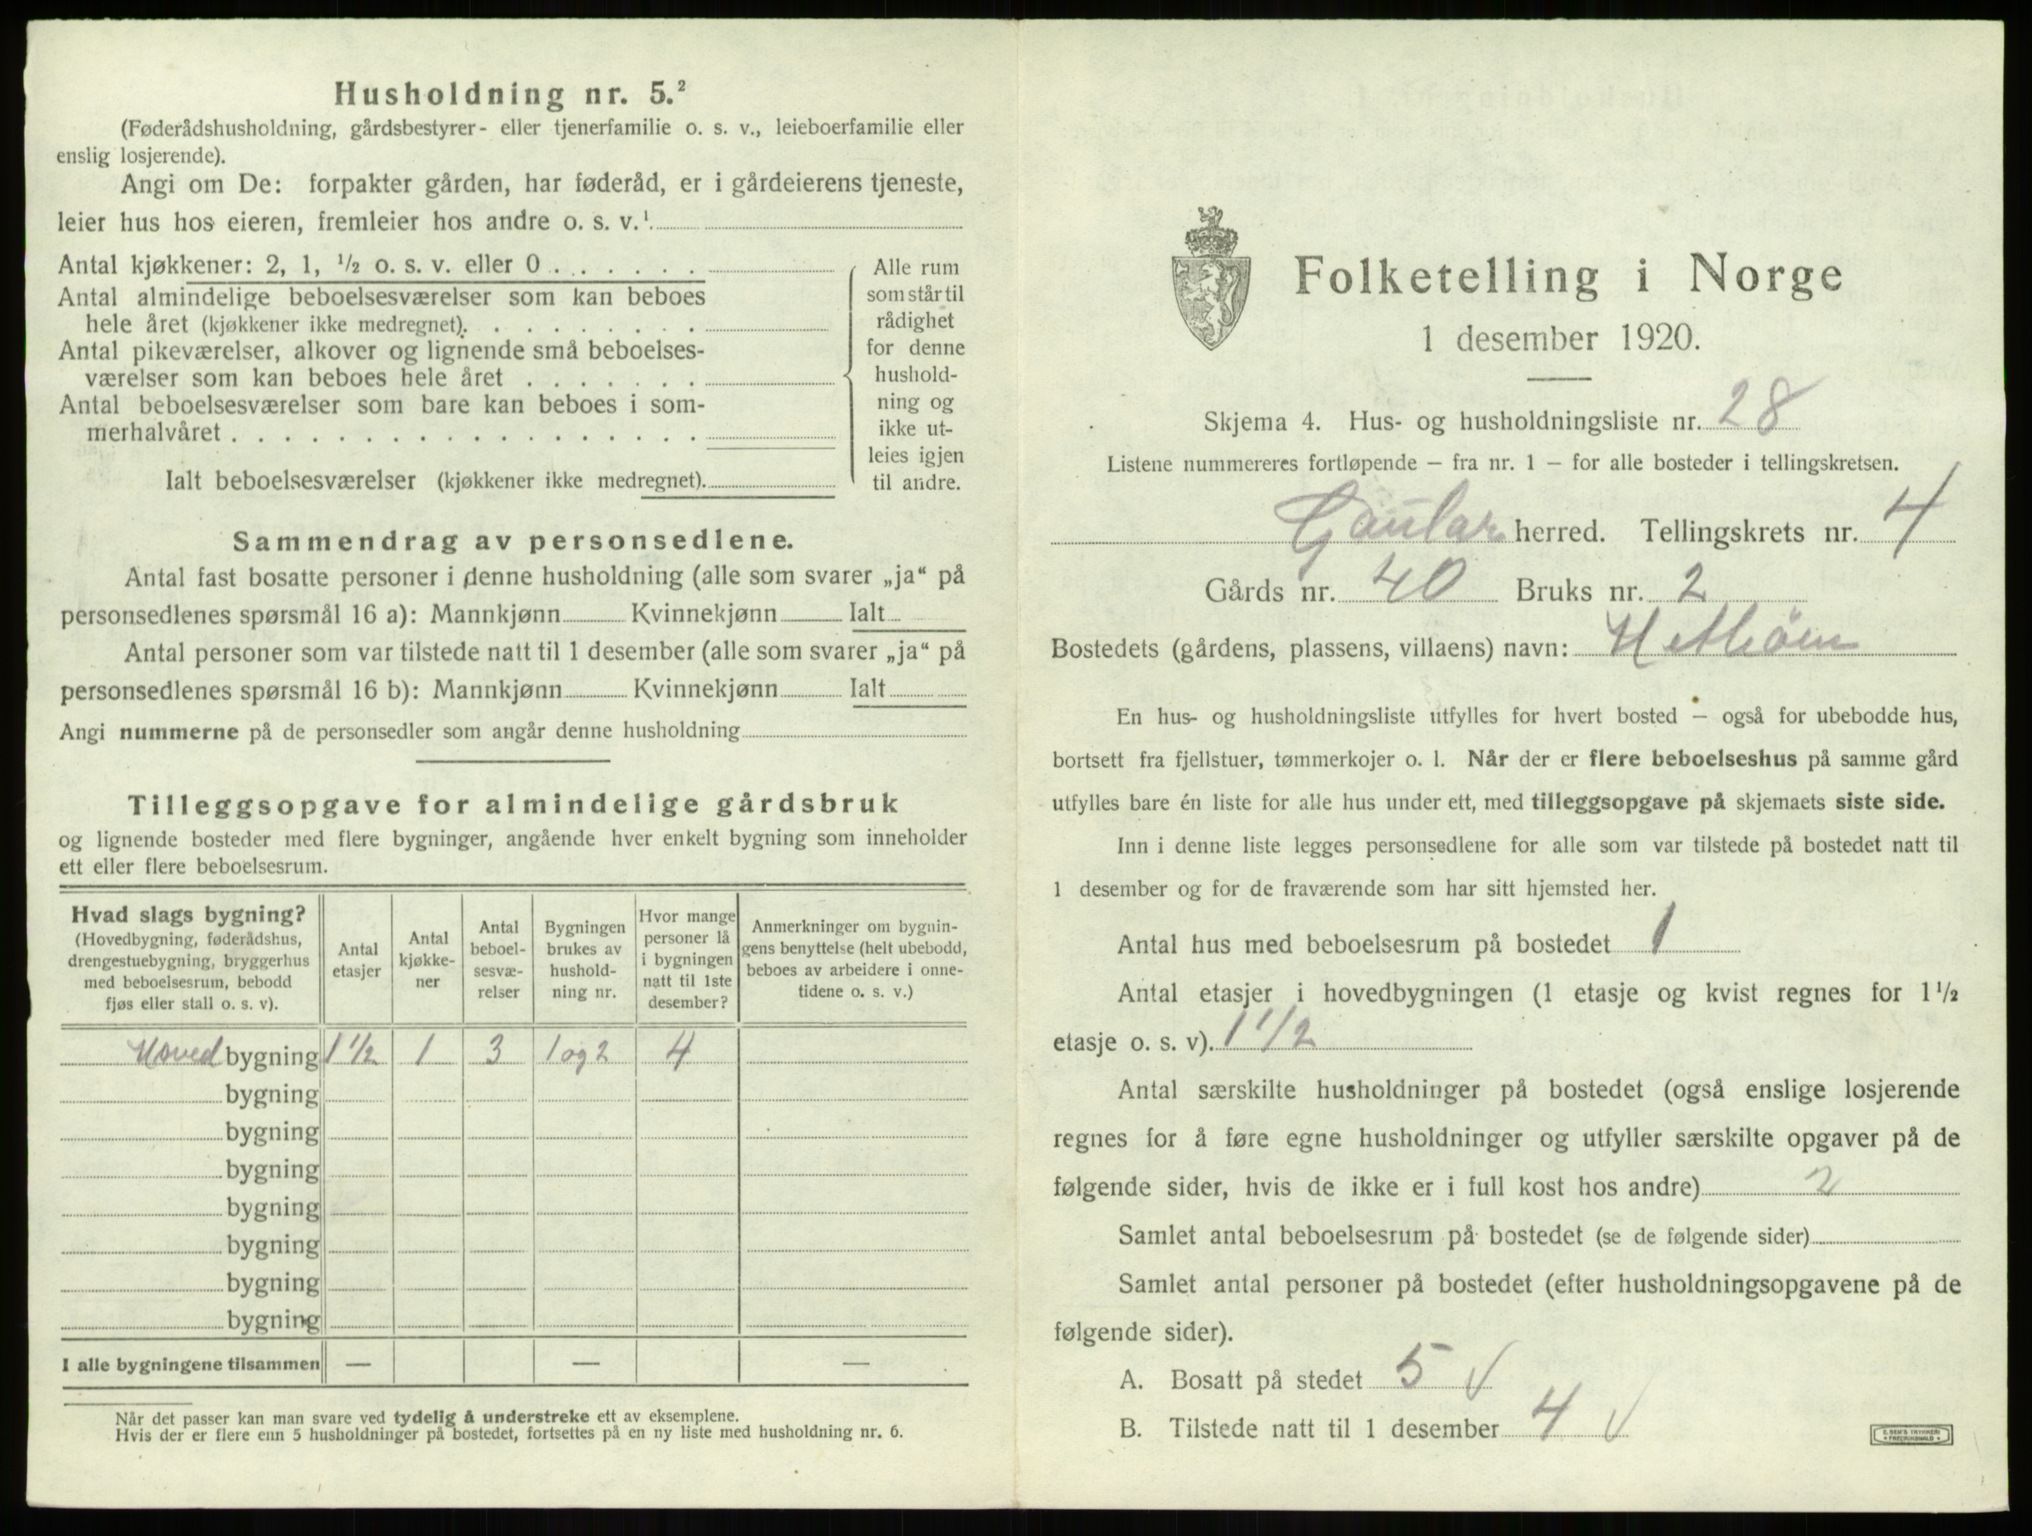 Husholdning nr. 5.²
(Føderådshusholdning, gårdsbestyrer- eller tjenerfamilie o. s. v., leieboerfamilie eller
enslig losjerende).
Angi om De: forpakter gården, har føderåd, er i gårdeierens tjeneste,
leier hus hos eieren, fremleier hos andre o. s. v.¹
Antal kjøkkener: 2, 1, ½ o. s. v. eller 0
Antal almindelige beboelsesværelser som kan beboes
hele året (kjøkkener ikke medregnet).
Antal pikeværelser, alkover og lignende små beboelses-
værelser som kan beboes hele året
Antal beboelsesværelser som bare kan beboes i som-
merhalvåret
Ialt beboelsesværelser (kjøkkener ikke medregnet).
Alle rum
som står til
rådighet
for denne
hushold-
ning og
ikke ut-
leies igjen
til andre.
Sammendrag av personsedlene.
Antal fast bosatte personer i denne husholdning (alle som svarer „ja“ på
personsedlenes spørsmål 16 a): Mannkjønn Kvinnekjønn Ialt
Antal personer som var tilstede natt til 1 desember (alle som svarer „ja“ på
personsedlenes spørsmål 16 b): Mannkjønn Kvinnekjønn Ialt
Angi nummerne på de personsedler som angår denne husholdning
Tilleggsopgave for almindelige gårdsbruk
og lignende bosteder med flere bygninger, angående hver enkelt bygning som inneholder
ett eller flere beboelsesrum.
Hvad slags bygning?
(Hovedbygning, føderådshus,
drengestuebygning, bryggerhus
med beboelsesrum, bebodd
fjøs eller stall o. s. v).
Antal
etasjer
Antal
kjøkke-
ner
Antal
beboel-
sesvæ-
relser
Bygningen
brukes av
hushold-
ning nr.
Hvor mange
personer lå
i bygningen
natt til 1ste
desember?
Anmerkninger om bygnin-
gens benyttelse (helt ubebodd,
beboes av arbeidere i onne-
tidene o. s. v.)
Hoved bygning 1 ½ 1 3 1 og 2 4
bygning
bygning
bygning
bygning
bygning
bygning
bygning
I alle bygningene tilsammen — — —
Når det passer kan man svare ved tydelig å understreke ett av eksemplene.
Hvis der er flere enn 5 husholdninger på bostedet, fortsettes på en ny liste med husholdning nr. 6.
Folketelling i Norge
1 desember 1920.
Skjema 4. Hus- og husholdningsliste nr. 28
Listene nummereres fortløpende – fra nr. 1 – for alle bosteder i tellingskretsen.
Gaular herred. Tellingskrets nr. 4
Gårds nr. 40 Bruks nr. 2
Bostedets (gårdens, plassens, villaens) navn:
En hus- og husholdningsliste utfylles for hvert bosted – også for ubebodde hus,
bortsett fra fjellstuer, tømmerkojer o. l. Når der er flere beboelseshus på samme gård
utfylles bare én liste for alle hus under ett, med tilleggsopgave på skjemaets siste side.
Inn i denne liste legges personsedlene for alle som var tilstede på bostedet natt til
1 desember og for de fraværende som har sitt hjemsted her.
Antal hus med beboelsesrum på bostedet 1
Antal etasjer i hovedbygningen (1 etasje og kvist regnes for 1½
etasje o. s. v). 1 ½
Antal særskilte husholdninger på bostedet (også enslige losjerende
regnes for å føre egne husholdninger og utfyller særskilte opgaver på de
følgende sider, hvis de ikke er i full kost hos andre) 2
Samlet antal beboelsesrum på bostedet (se de følgende sider)
Samlet antal personer på bostedet (efter husholdningsopgavene på de
følgende sider).
A. Bosatt på stedet 5 √
B. Tilstede natt til 1 desember 4 √